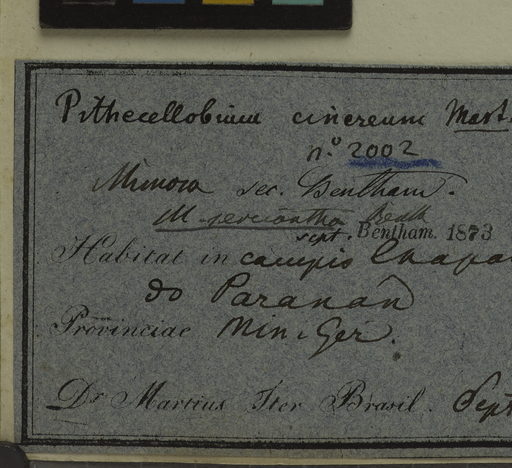 Pithecellobium cinereum Mart.
n.o 2002
Mimosa sec. Bentham.
M. Benth
sept. Bentham. 1873
Habitat in campis Chapa
do Paranan
Provinciae Min. Ger.
Dr Martius Iter Brasil. Sept